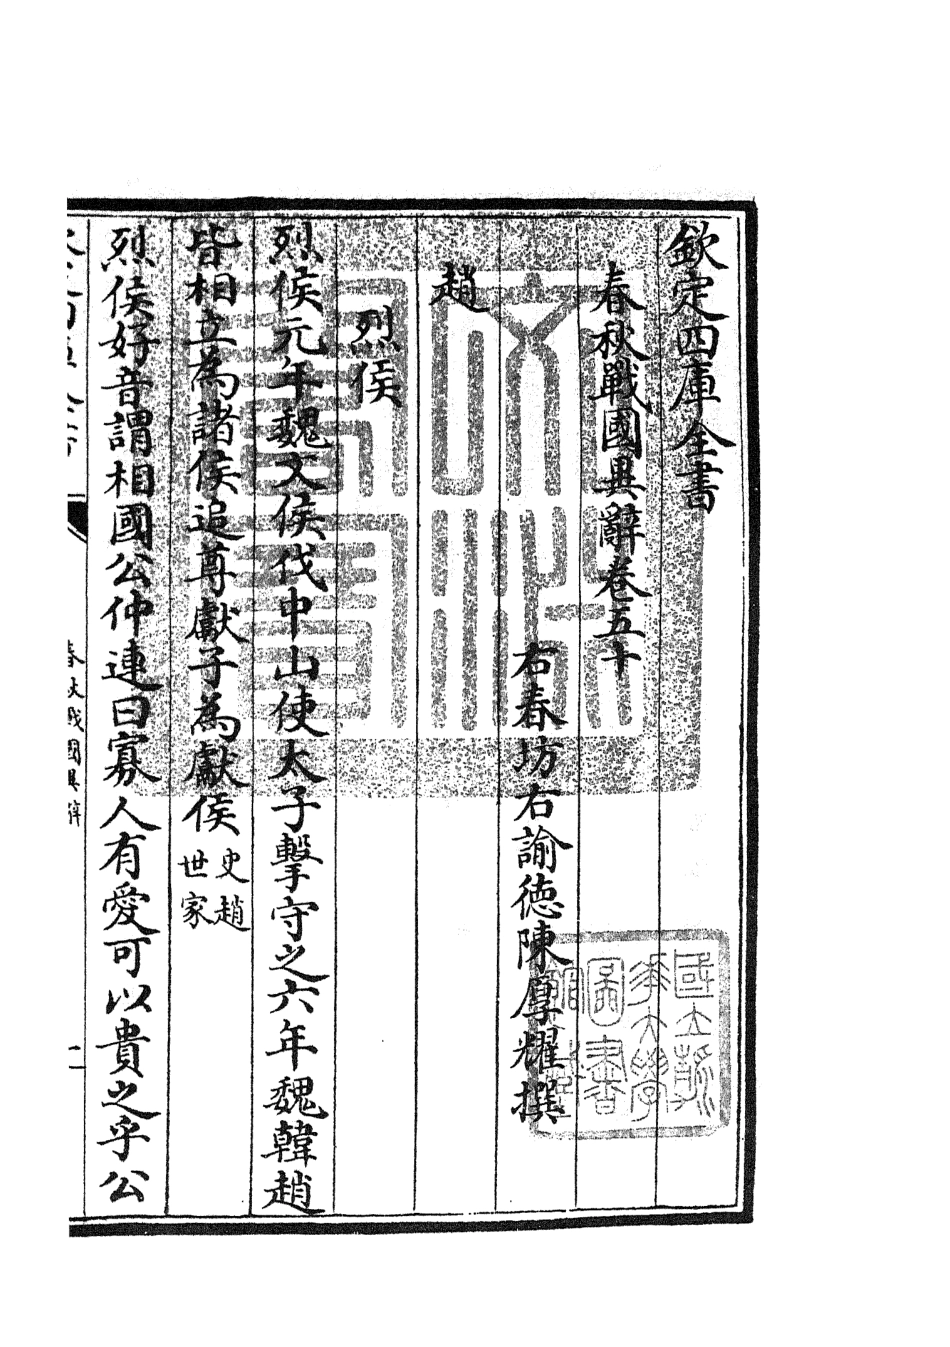 欽定四庫全書
春秋戰國異辭卷五十
右春坊右諭徳陳厚耀撰
趙
烈侯
烈侯元年魏文侯伐中山使太子擊守之六年魏韓趙
皆相立為諸侯追尊獻子為獻侯
史趙
世家
烈侯好音謂相國公仲連曰寡人有愛可以貴之乎公
春秋戰國異辭